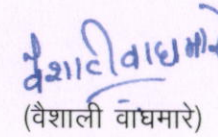 वैशाली वाघमारे
(वैशाली वाघमारे)